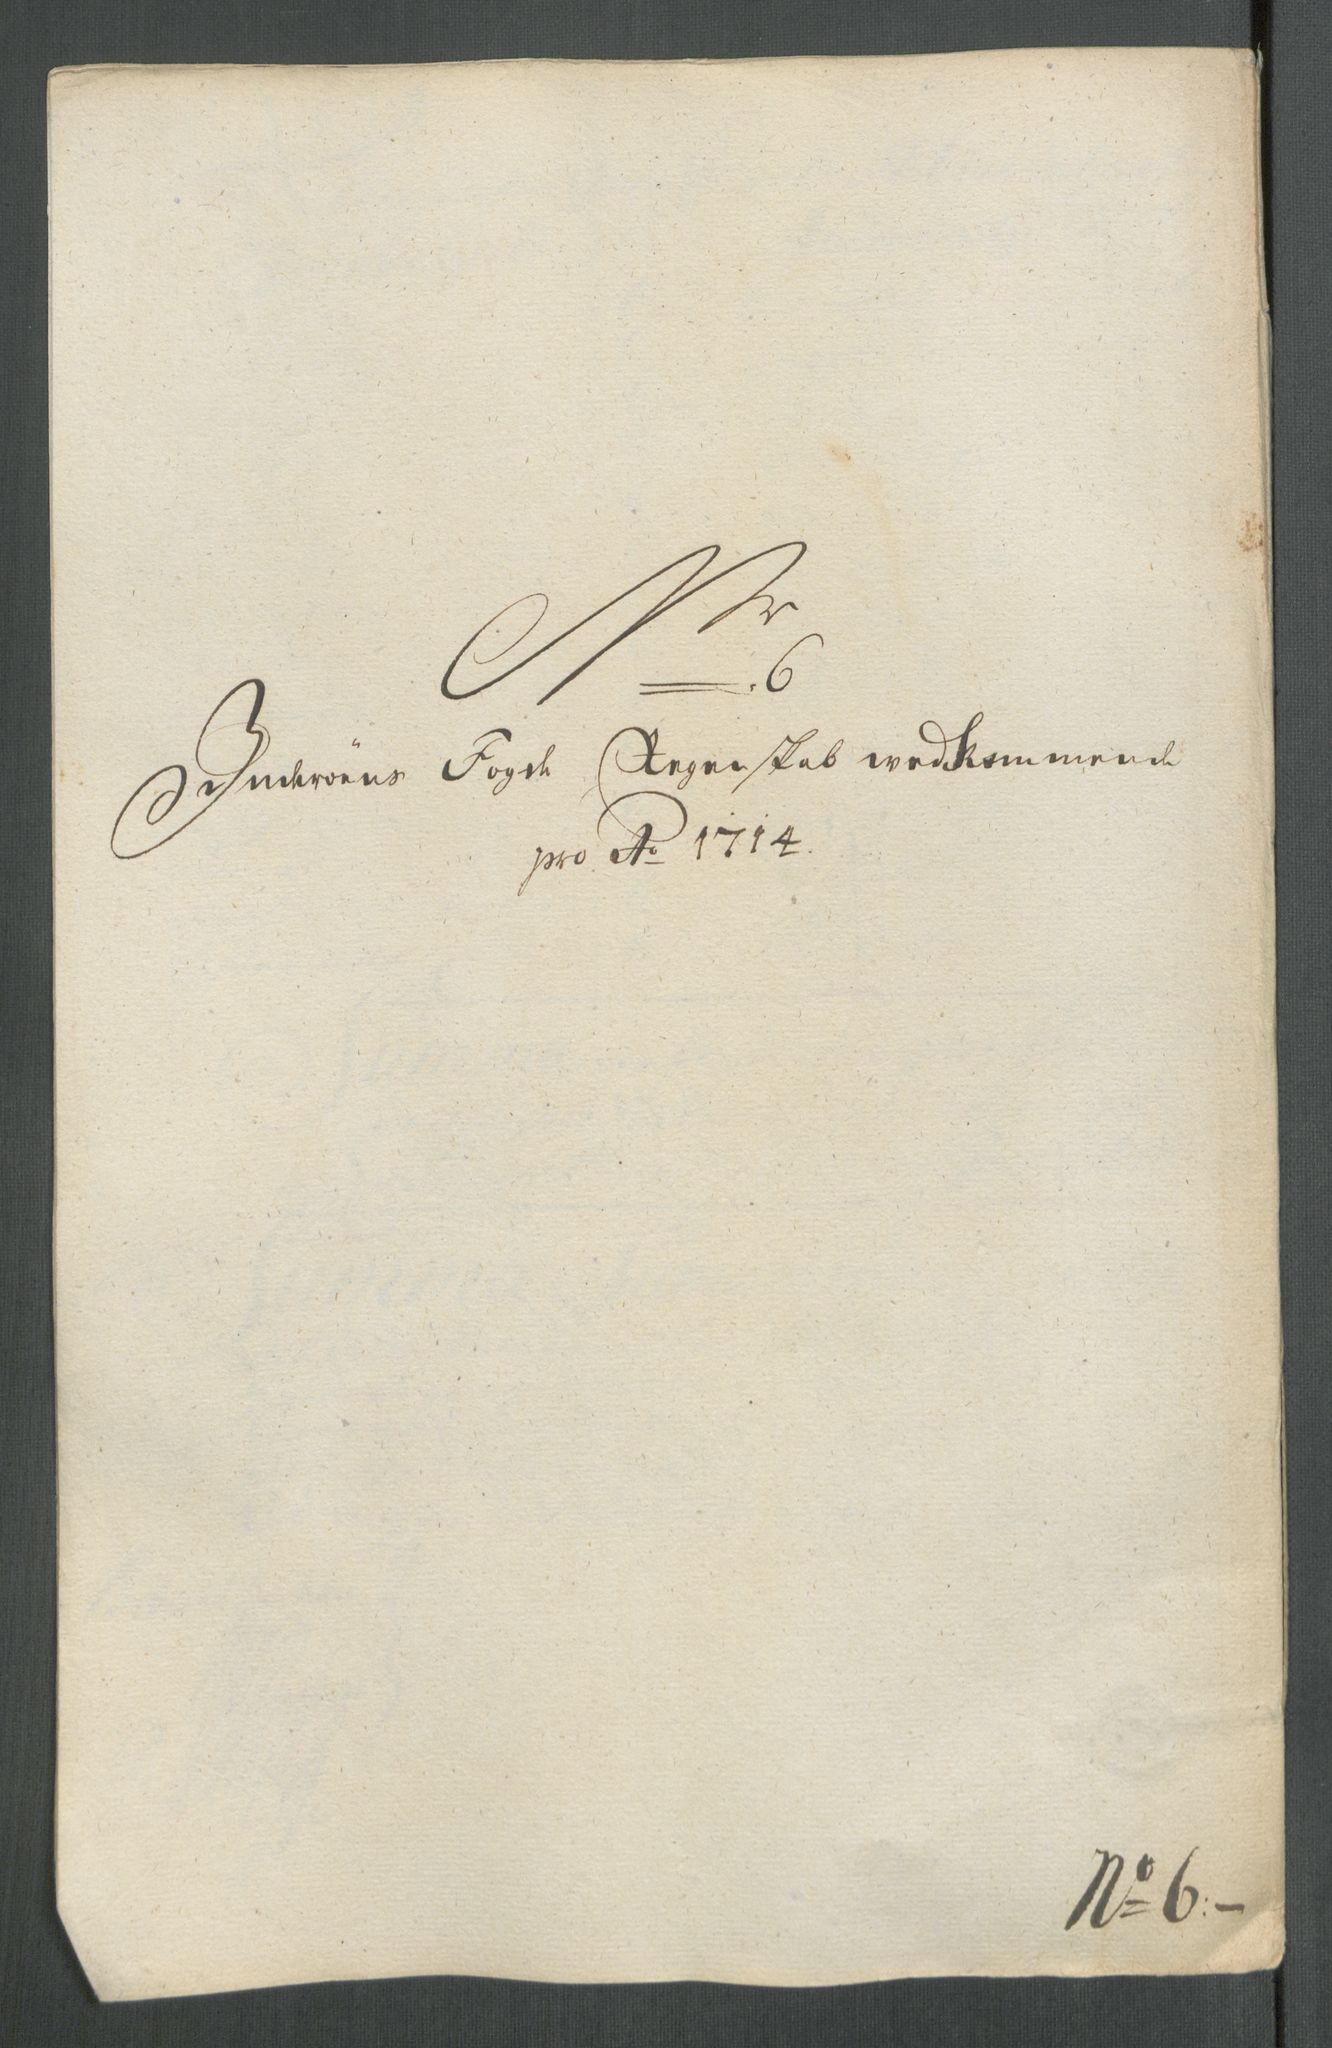 Nr
6
Inderöens Fogde Regenskab wedkommende
pro Ao 1714.
No 6:-